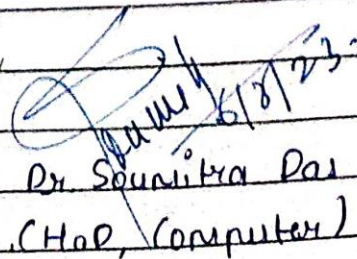 6/8/23
Dr. Soumitra Das
(HoD, Computer)